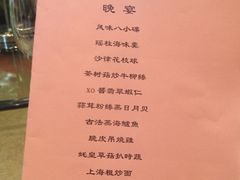 晚宴
风味八小碟
瑶柱海味羹
沙律花枝球
茶树菇炒牛柳丝
XO醬翡翠虾仁
蒜茸粉絲蒸日月贝
古法蒸海鱸魚
脆皮吊燒雞
蚝皇草菇扒時蔬
上海粗炒面